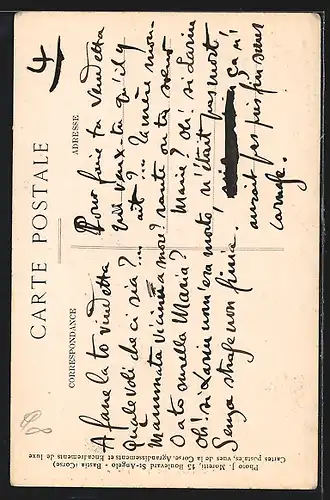 4
CARTE POSTALE
CORRESPONDANCE
ADRESSE
A fane la to vindetta
Quale voli che ci sia?...
Mammata vicina a more?
O a to surella Maria?
Oh! si Lariu nun era mortu
Senza strage non finia.
Pour faire ta vendetta
Qui veux-tu qu'il y
ait? ... ta mère mou-
rante ou ta sœur
Marie? Oh! si Lariu
n'était pas mort
ça n'
aurait pas pris fin sans
carnage.
Photo J. Moretti, 15 Boulevard St-Angelo - Bastia (Corse)
Cartes postales, vues, de la Corse-Agrandissements et Encadrements de luxe